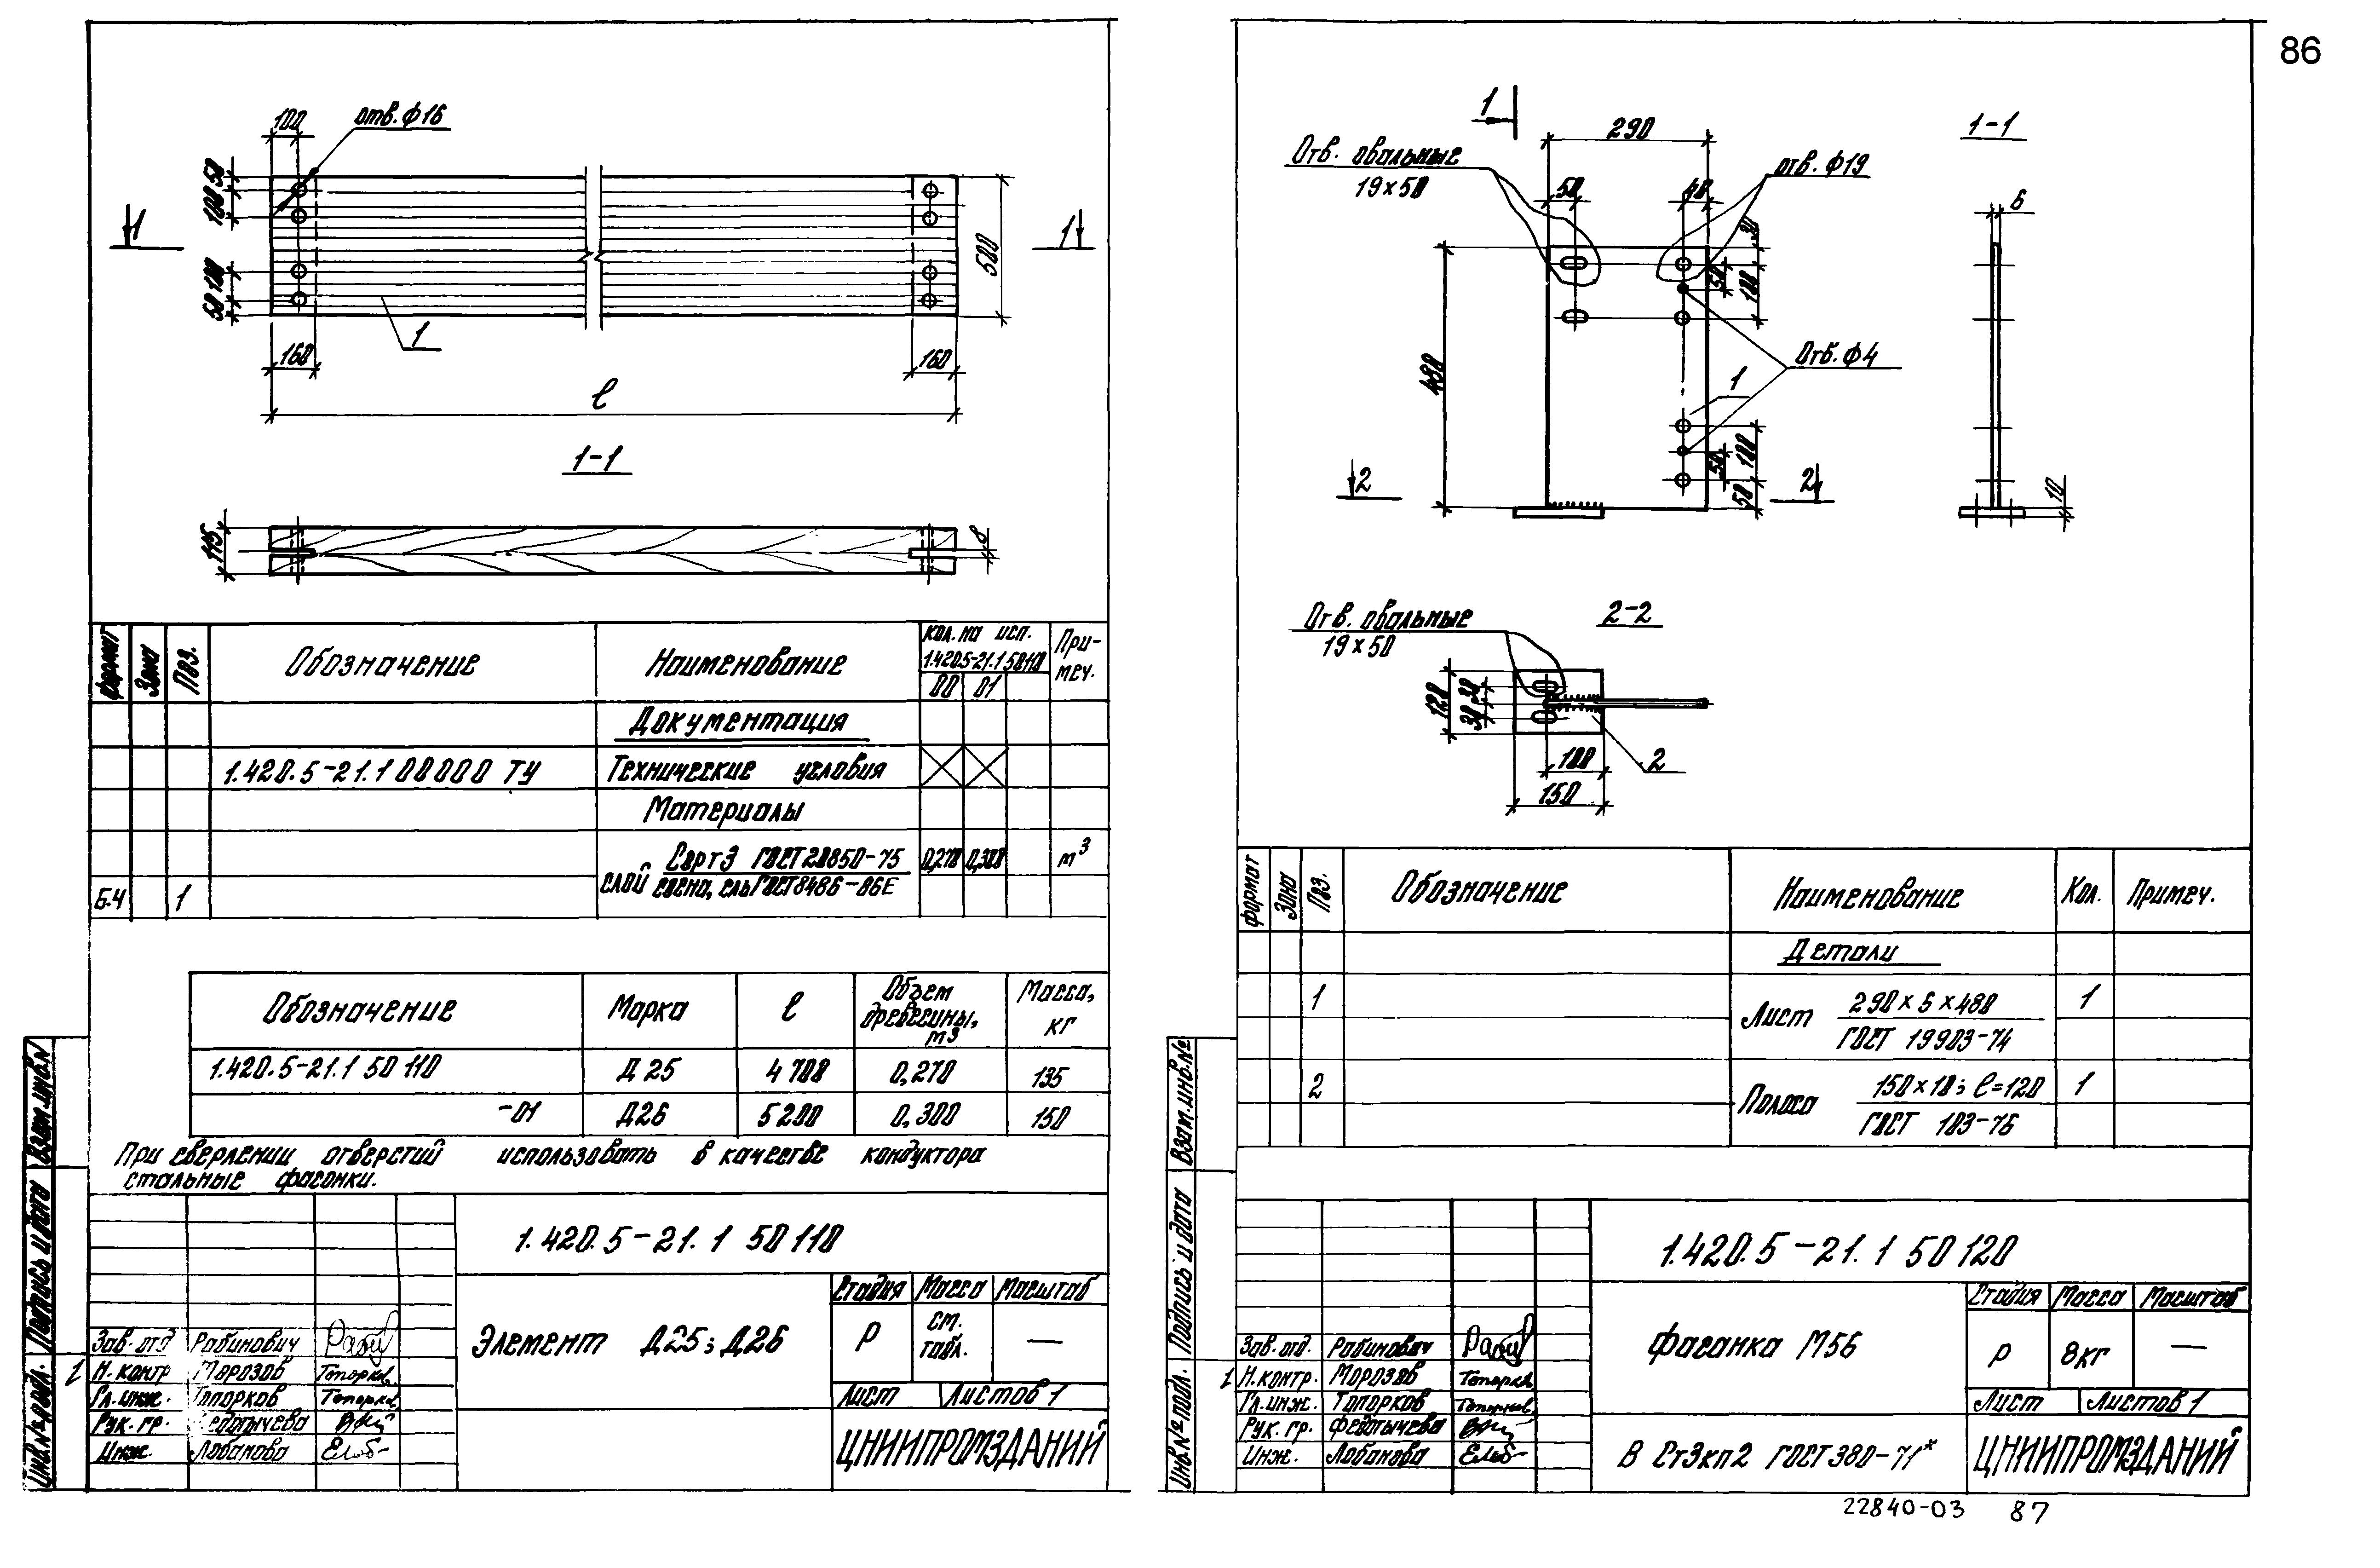 86
100
отв. ф16
50
100
100
50
1
1
500
1
160
160
ℓ
1-1
115
8
формат
Зона
Поз.
Обозначение
Наименование
Кол. на исп.
1.420.5-21.1 50110
При-
меч.
00 01
Документация
1.420.5-21.1 00000 ТУ Технические условия
Материалы
Сорт 3 ГОСТ 20850-75 0,270 0,300 м³
Б.Ч 1 слой сосна, ель ГОСТ 8486-86Е
Обозначение Марка ℓ Объем древесины, м³ Масса, кг
1.420.5-21.1 50 110 Д25 4700 0,270 135
-01 Д26 5200 0,300 150
При сверлении отверстий использовать в качестве кондуктора
стальные фасонки.
1.420.5-21.1 50110
Элемент Д25; Д26
Стадия Масса Масштаб
Р см. табл. —
Лист Листов 1
ЦНИИПРОМЗДАНИЙ
Зав. отд Рабинович
Н. контр Морозов Топорков
Гл. инж. Топорков Топорков
Рук. гр. Федотычева
Инж. Лобанова
Инв.№ подл.
Подпись и дата
Взам.инв.N
1
1-1
290
Отв. овальные
19×50
отв. ф19
50
40
30
6
50
100
480
Отв. ф4
1
100
50
50
2
2
10
Отв. овальные
19×50
2-2
120
30 30
100
2
150
формат
Зона
Поз.
Обозначение
Наименование
Кол.
Примеч.
Детали
1 Лист 290×6×480 1
ГОСТ 19903-74
2 Полоса 150×10; ℓ=120 1
ГОСТ 103-76
1.420.5-21.1 50 120
Фасонка М56
Стадия Масса Масштаб
Р 8кг —
Лист Листов 1
В Ст3кп2 ГОСТ 380-71*
ЦНИИПРОМЗДАНИЙ
Зав. отд. Рабинович
Н. контр. Морозов Топорков
Гл. инж. Топорков Топорков
Рук. гр. Федотычева
Инж. Лобанова
Инв.№ подл.
Подпись и дата
Взам.инв.№
22840-03 87